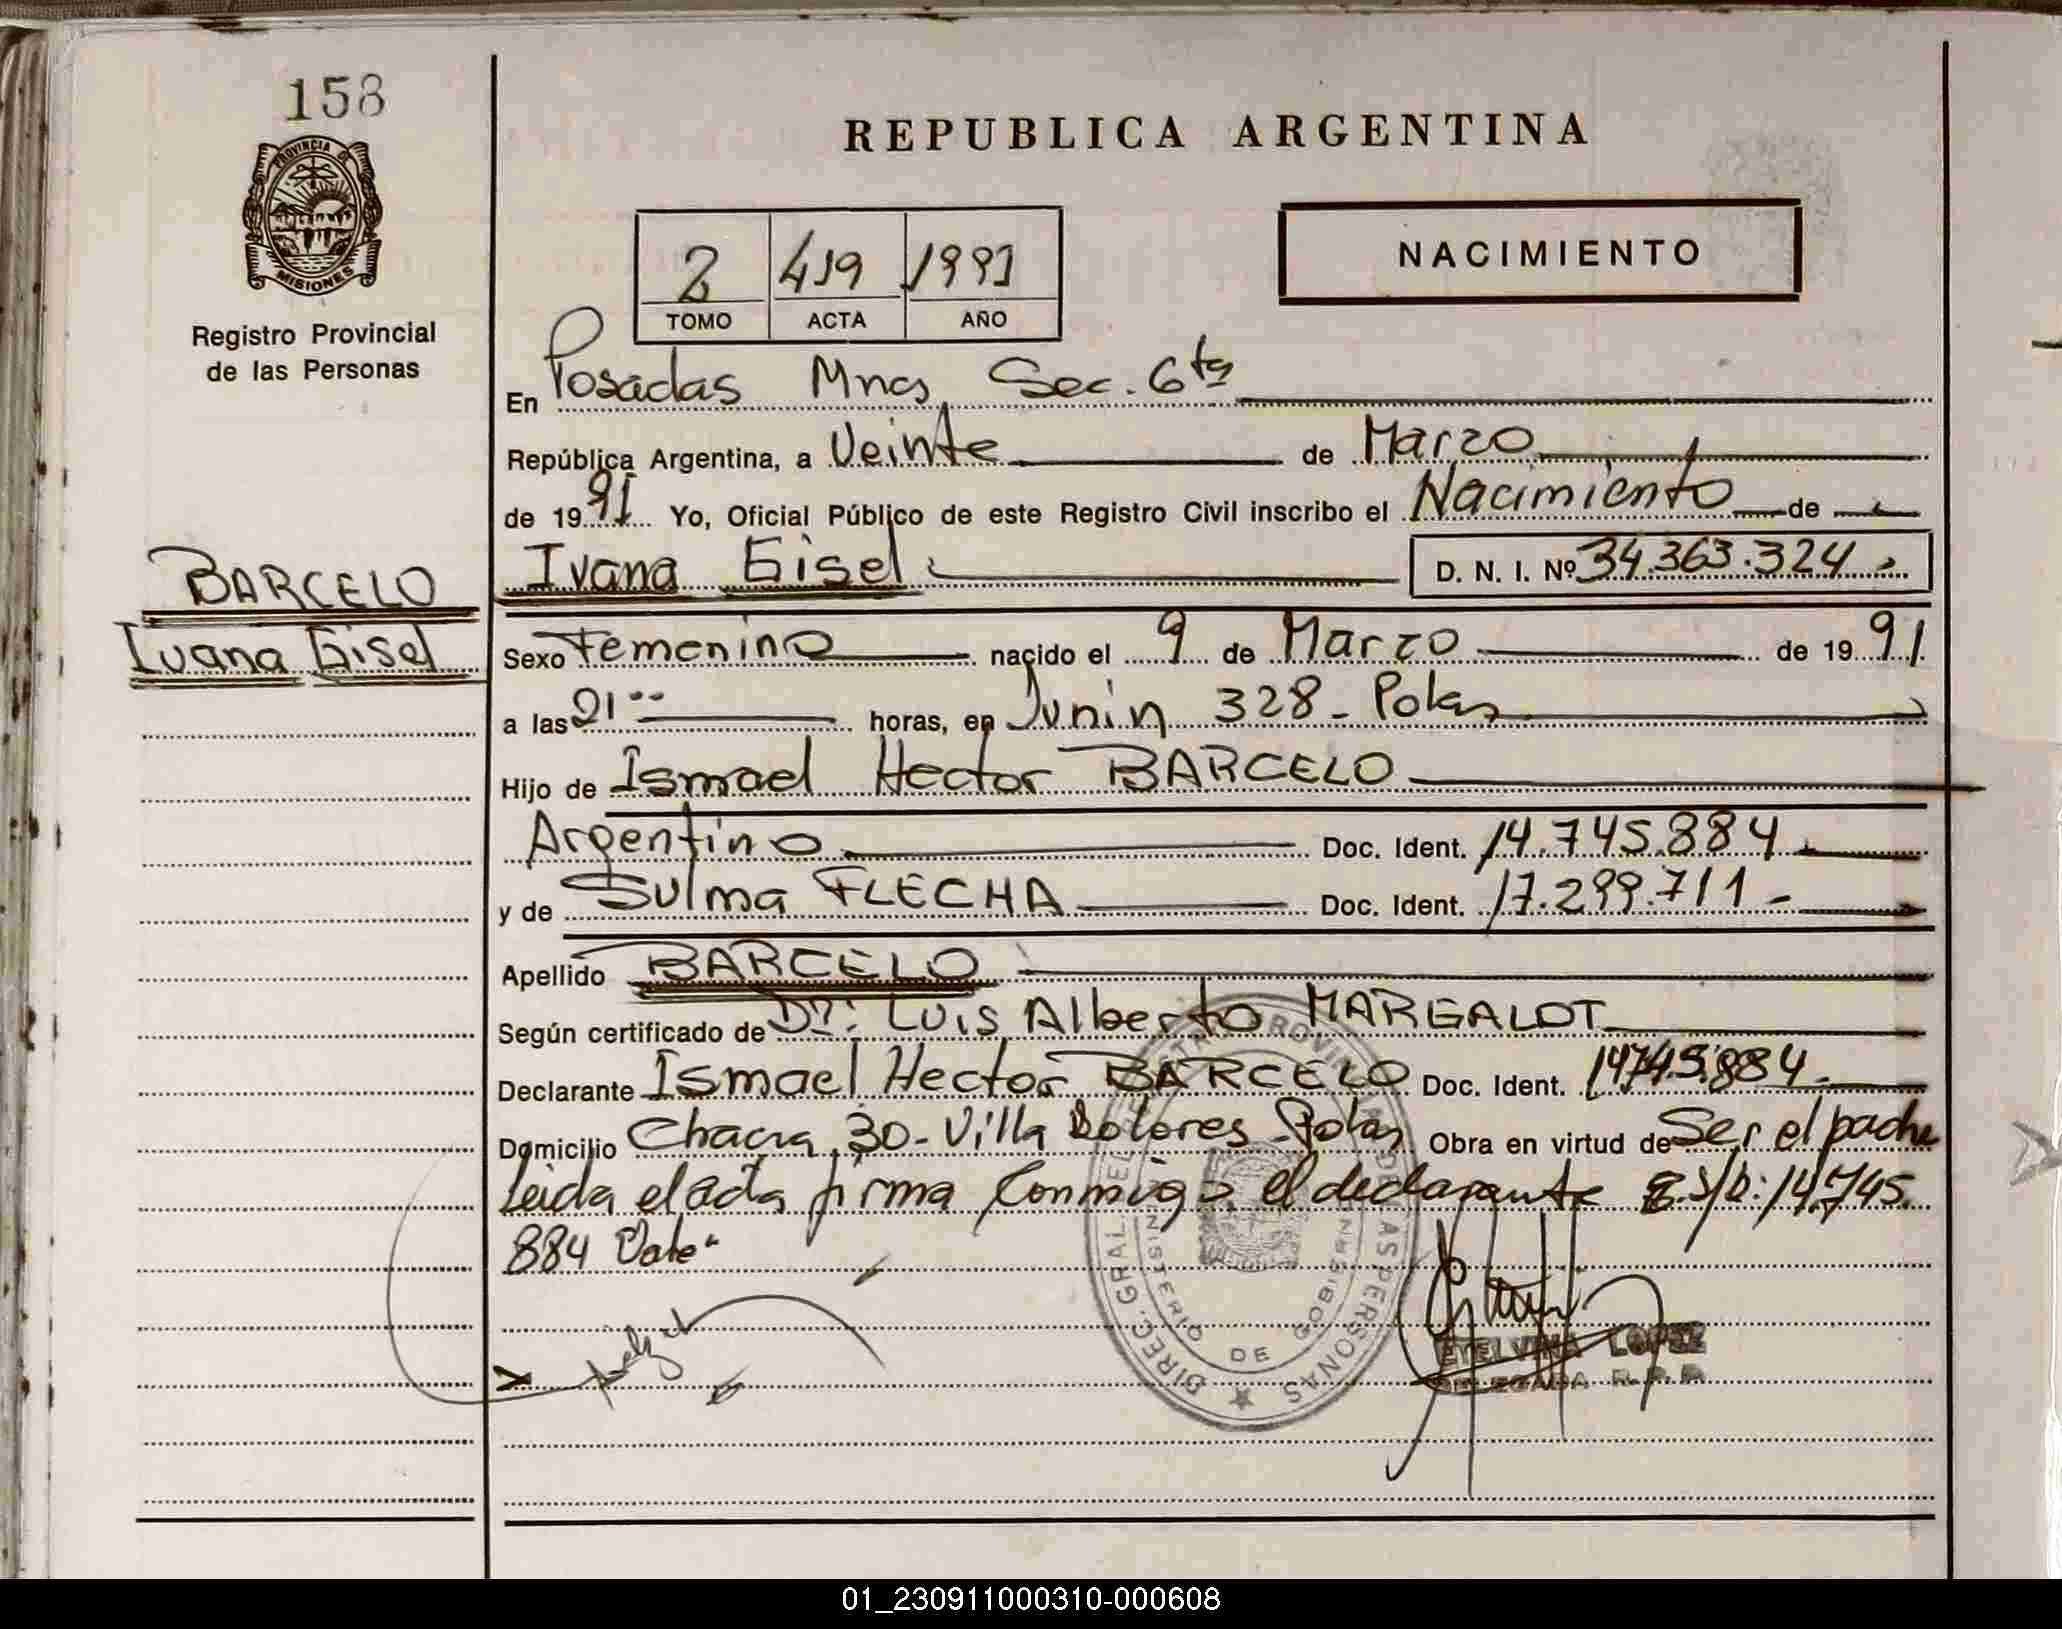 158
PROVINCIA DE
MISIONES
Registro Provincial
de las Personas
BARCELO
Ivana Gisel
REPUBLICA ARGENTINA
NACIMIENTO
2 419 1991
TOMO ACTA AÑO
En Posadas Mnes Sec. 6ta
República Argentina, a Veinte de Marzo
de 1991 Yo, Oficial Público de este Registro Civil inscribo el Nacimiento de
Ivana Gisel D. N. I. Nº 34.363.324
Sexo Femenino nacido el 9 de Marzo de 1991
a las 21 horas, en Junin 328 - Pdas
Hijo de Ismael Hector BARCELO
Argentino Doc. Ident. 14.745.884
y de Sulma FLECHA Doc. Ident. 17.299.711 -
Apellido BARCELO
Según certificado de Dr: Luis Alberto MARGALOT
Declarante Ismael Hector BARCELO Doc. Ident. 14745.884.
Domicilio Chacra 30 - Villa Dolores Pdas Obra en virtud de Ser el padre
Leida el acta firma Conmigo el declarante E.S/R: 14.745.
884 Vale"
DIREC. GRAL. DEL REGISTRO PROVINCIAL DE LAS PERSONAS
MINISTERIO DE GOBIERNO
ETELVINA LOPEZ
DELEGADA R. P. P.
01_230911000310-000608